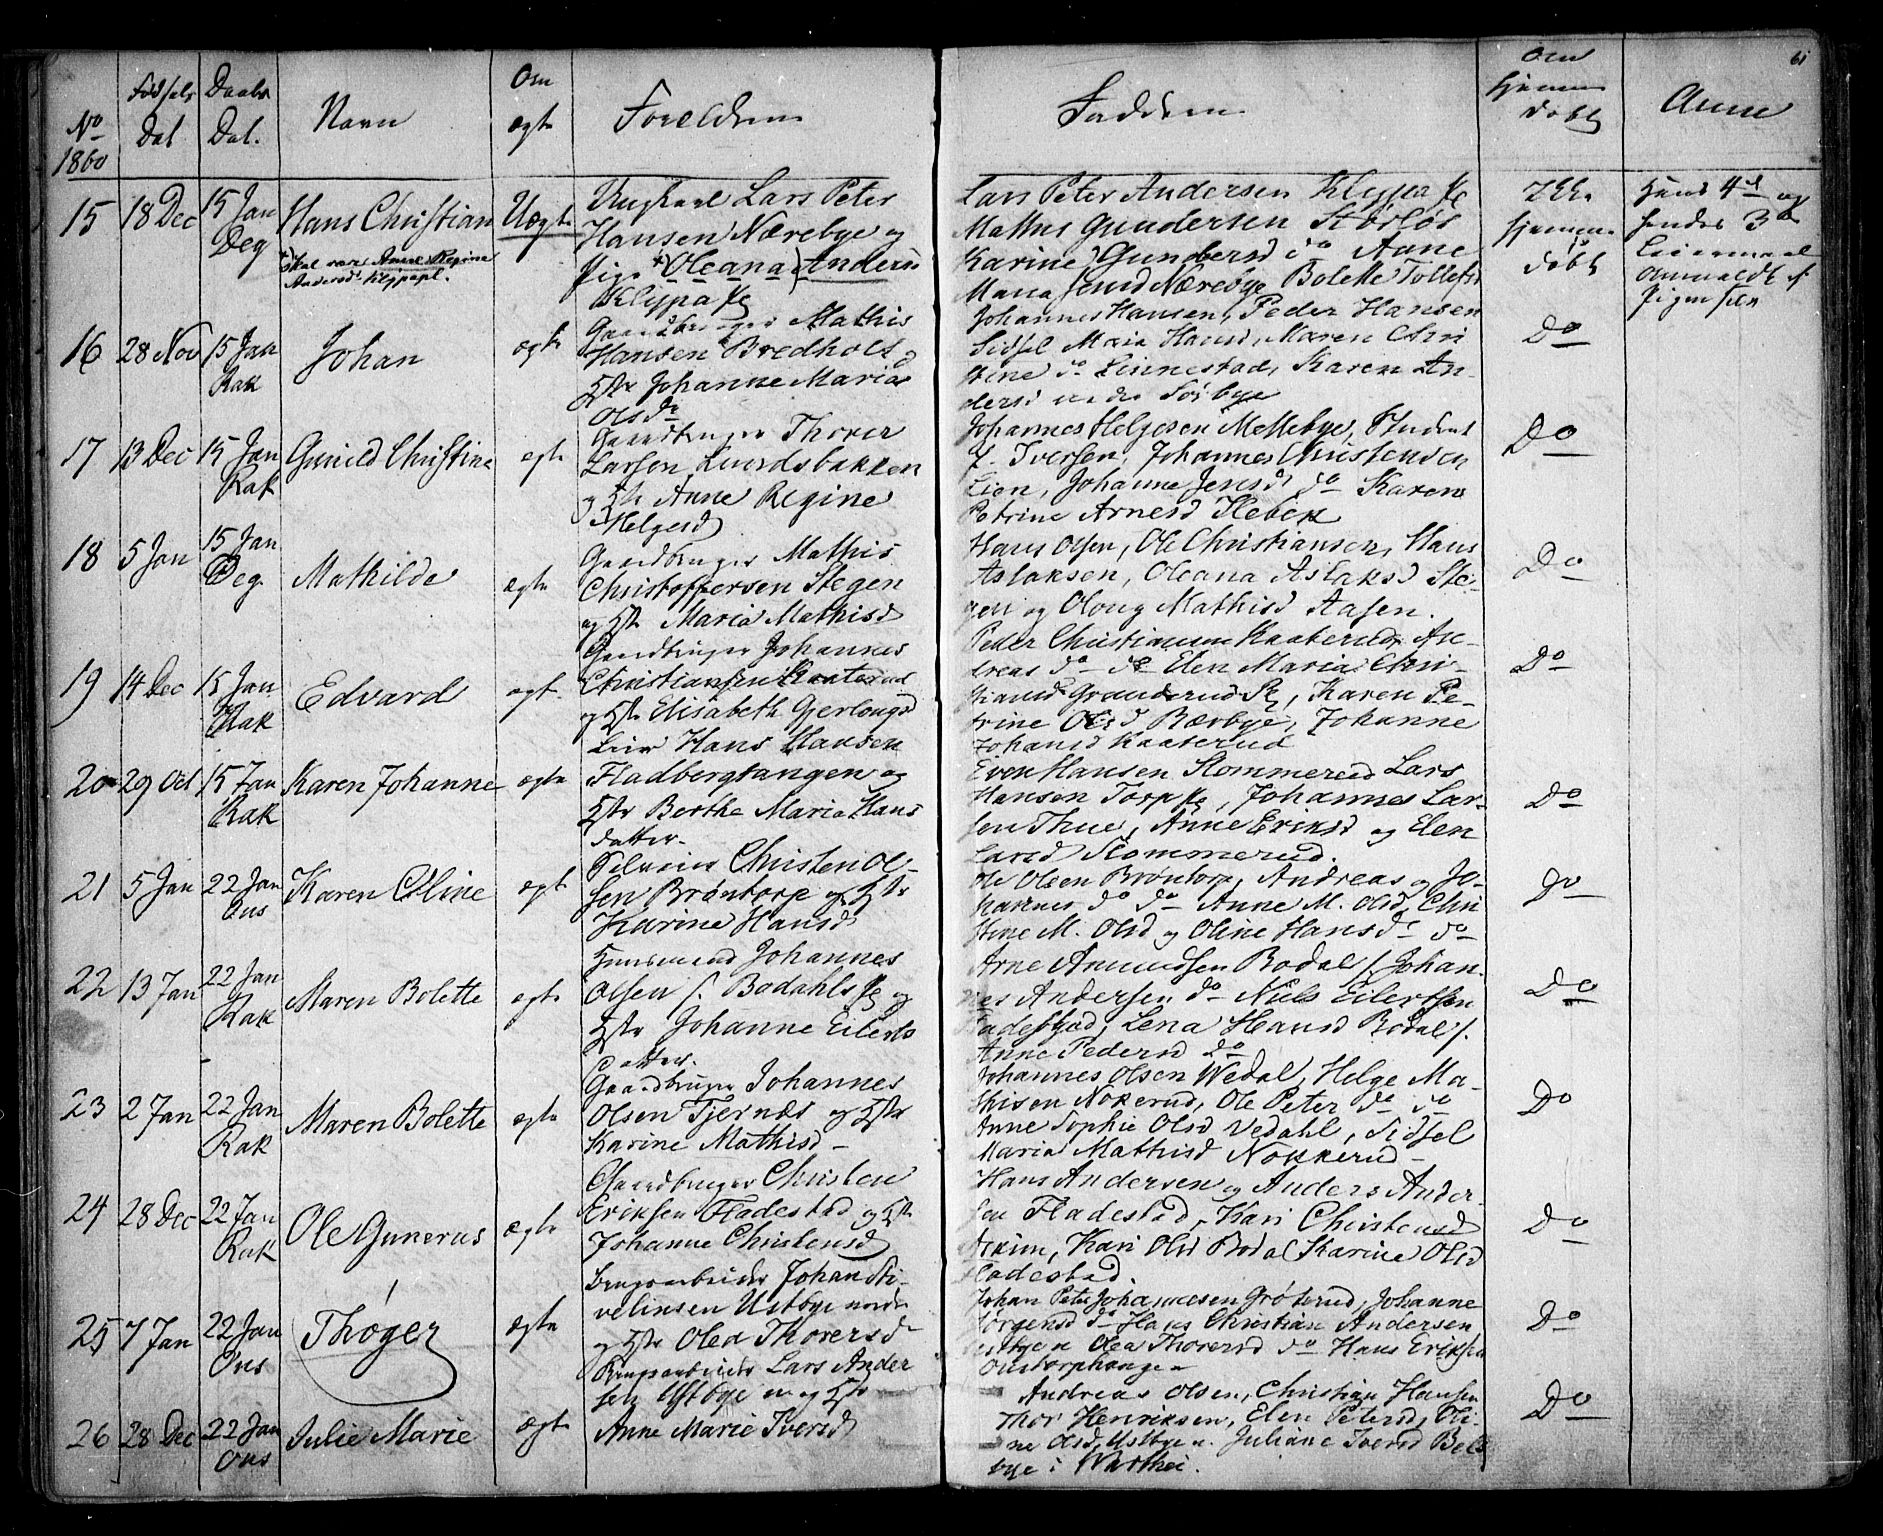 61
No
1860
Fødsels
Dat
Daabs
Dat.
Navn
Om
ægte
Foreldrene
Fadderne
Om
hjemme
døbt
Anm
15 18 Dec 15 Jan
Deg
Hans Christian
Skal være Anne Regine
Andersd. Klypepl.
Uægte
Ungkarl Lars Peter
Hansen Nærebye og
Pige Oleana Anders
Klyppa
Lars Peter Andersen Klyppa
Mathis Gundersen
Karine Gundersd do Anne
Maria Nærebye Bolette Tollefsd
Ikke
hjemme
døbt
Hans 4de og
hendes 3die
Leiermaal
anmeldt af
Pigen selv
16 28 Nov 15 Jan
Rak
Johan
ægte
Gaardbruger Mathis
Hansen Bredholt
Hstr Johanne Maria
Olsd
Johannes Hansen, Peder Hansen
Sidsel Maia Hansd, Maren Chri
stine do Linnestad, Karen An-
dersd
Do
17 13 Dec 15 Jan
Rak
Gunild Christine
ægte
Gaardbruger Thorer
Larsen Lundsbakken
og Hstr Anne Regine
Helgesd
Johannes Helgesen Mellebye, Student
Iversen, Johannes Christensen
Lien, Johanne Jensd do Karen
Petrine Arnesd
Do
18 5 Jan 15 Jan
Deg.
Mathilde
ægte
Gaardbruger Mathis
Christoffersen Stegen
og Hstr Maria Mathisd
Hans Olsen, Ole Christiansen, Hans
Aslaksen, Oleana Aslaksd Ste-
gen og Oloug Mathisd Aasen.
Do
19 14 Dec 15 Jan
Rak
Edvard
ægte
Gaardbruger Johannes
Christiansen Kaaterud
og Hstr Elisabeth Gjerlougsd
Peder Christiansen Kaaterud, An-
dreas do do Elen Maria Chri-
stiansd Granderud, Karen Pe-
trine Olsd Bærbye, Johanne
Johansd Kaaterud
Do
20 29 Oct 15 Jan
Rak
Karen Johanne
ægte
Leir Hans Hansen
Fladbergtangen og
Hstr Berthe Maria Hans
datter.
Even Hansen Slommerud Lars
Hansen Torp, Johannes Lar-
sen Thue, Anne Eriksd og Elen
Larsd Slommerud.
Do
21 5 Jan 22 Jan
Ons
Karen Oline
ægte
Selveier Christen Ol-
sen Brøntorp og Hstr
Karine Hansd
Ole Olsen Brøntorp, Andreas og Jo-
hannes do do Anne M. Olsd, Chri
stine M. Olsd og Oline Hansd do
Do
22 13 Jan 22 Jan
Rak
Maren Bolette
ægte
Huusmand Johannes
Olsen s. Bodahls og
Hstr Johanne Eilerts
datter.
Arne Amundsen Bodal s. Johan-
nes Andersen do Niels Eilertsen
Fladestad, Lena Hansd Bodal s.
Anne Pedersd do
Do
23 2 Jan 22 Jan
Rak
Maren Bolette
ægte
Gaardbruger Johannes
Olsen Tjernæs og Hstr
Karine Mathisd
Johannes Olsen Wedal, Helge Ma-
thisen Nokerud, Ole Peter do do
Anne Sophie Olsd Vedahl, Sidsel
Maria Mathisd Nokkerud
Do
24 28 Dec 22 Jan
Rak
Ole Gunerus
ægte
Gaardbruger Christen
Eriksen Fladestad og Hstr
Johanne Christensd
Hans Andersen og Anders Ander-
sen Fladestad, Kari Christensd
Askim, Kari Olsd Bodal Karine Olsd
Fladestad.
Do
25 7 Jan 22 Jan
Ons
Thøger
ægte
Brugsarbeider Johan Sti-
velinsen Ustbye nordre
og Hstr Olea Thorersd
Johan Peter Johannesen Grøterud, Johanne
Jørgensd do Hans Christian Andersen
Ustbye n Olea Thorersd do Hans Eriksen
Oustorphougen
Do
26 28 Dec 22 Jan
Ons
Julie Marie
ægte
Brugsarbeider Lars Ander
sen Ustbye n og Hstr
Anne Marie Iversd
Andreas Olsen, Christian Hansen
Thor Henriksen, Elen Petersd, Oli-
ne Olsd, Ustbye n. Juliane Iversd Bels
bye i
Do